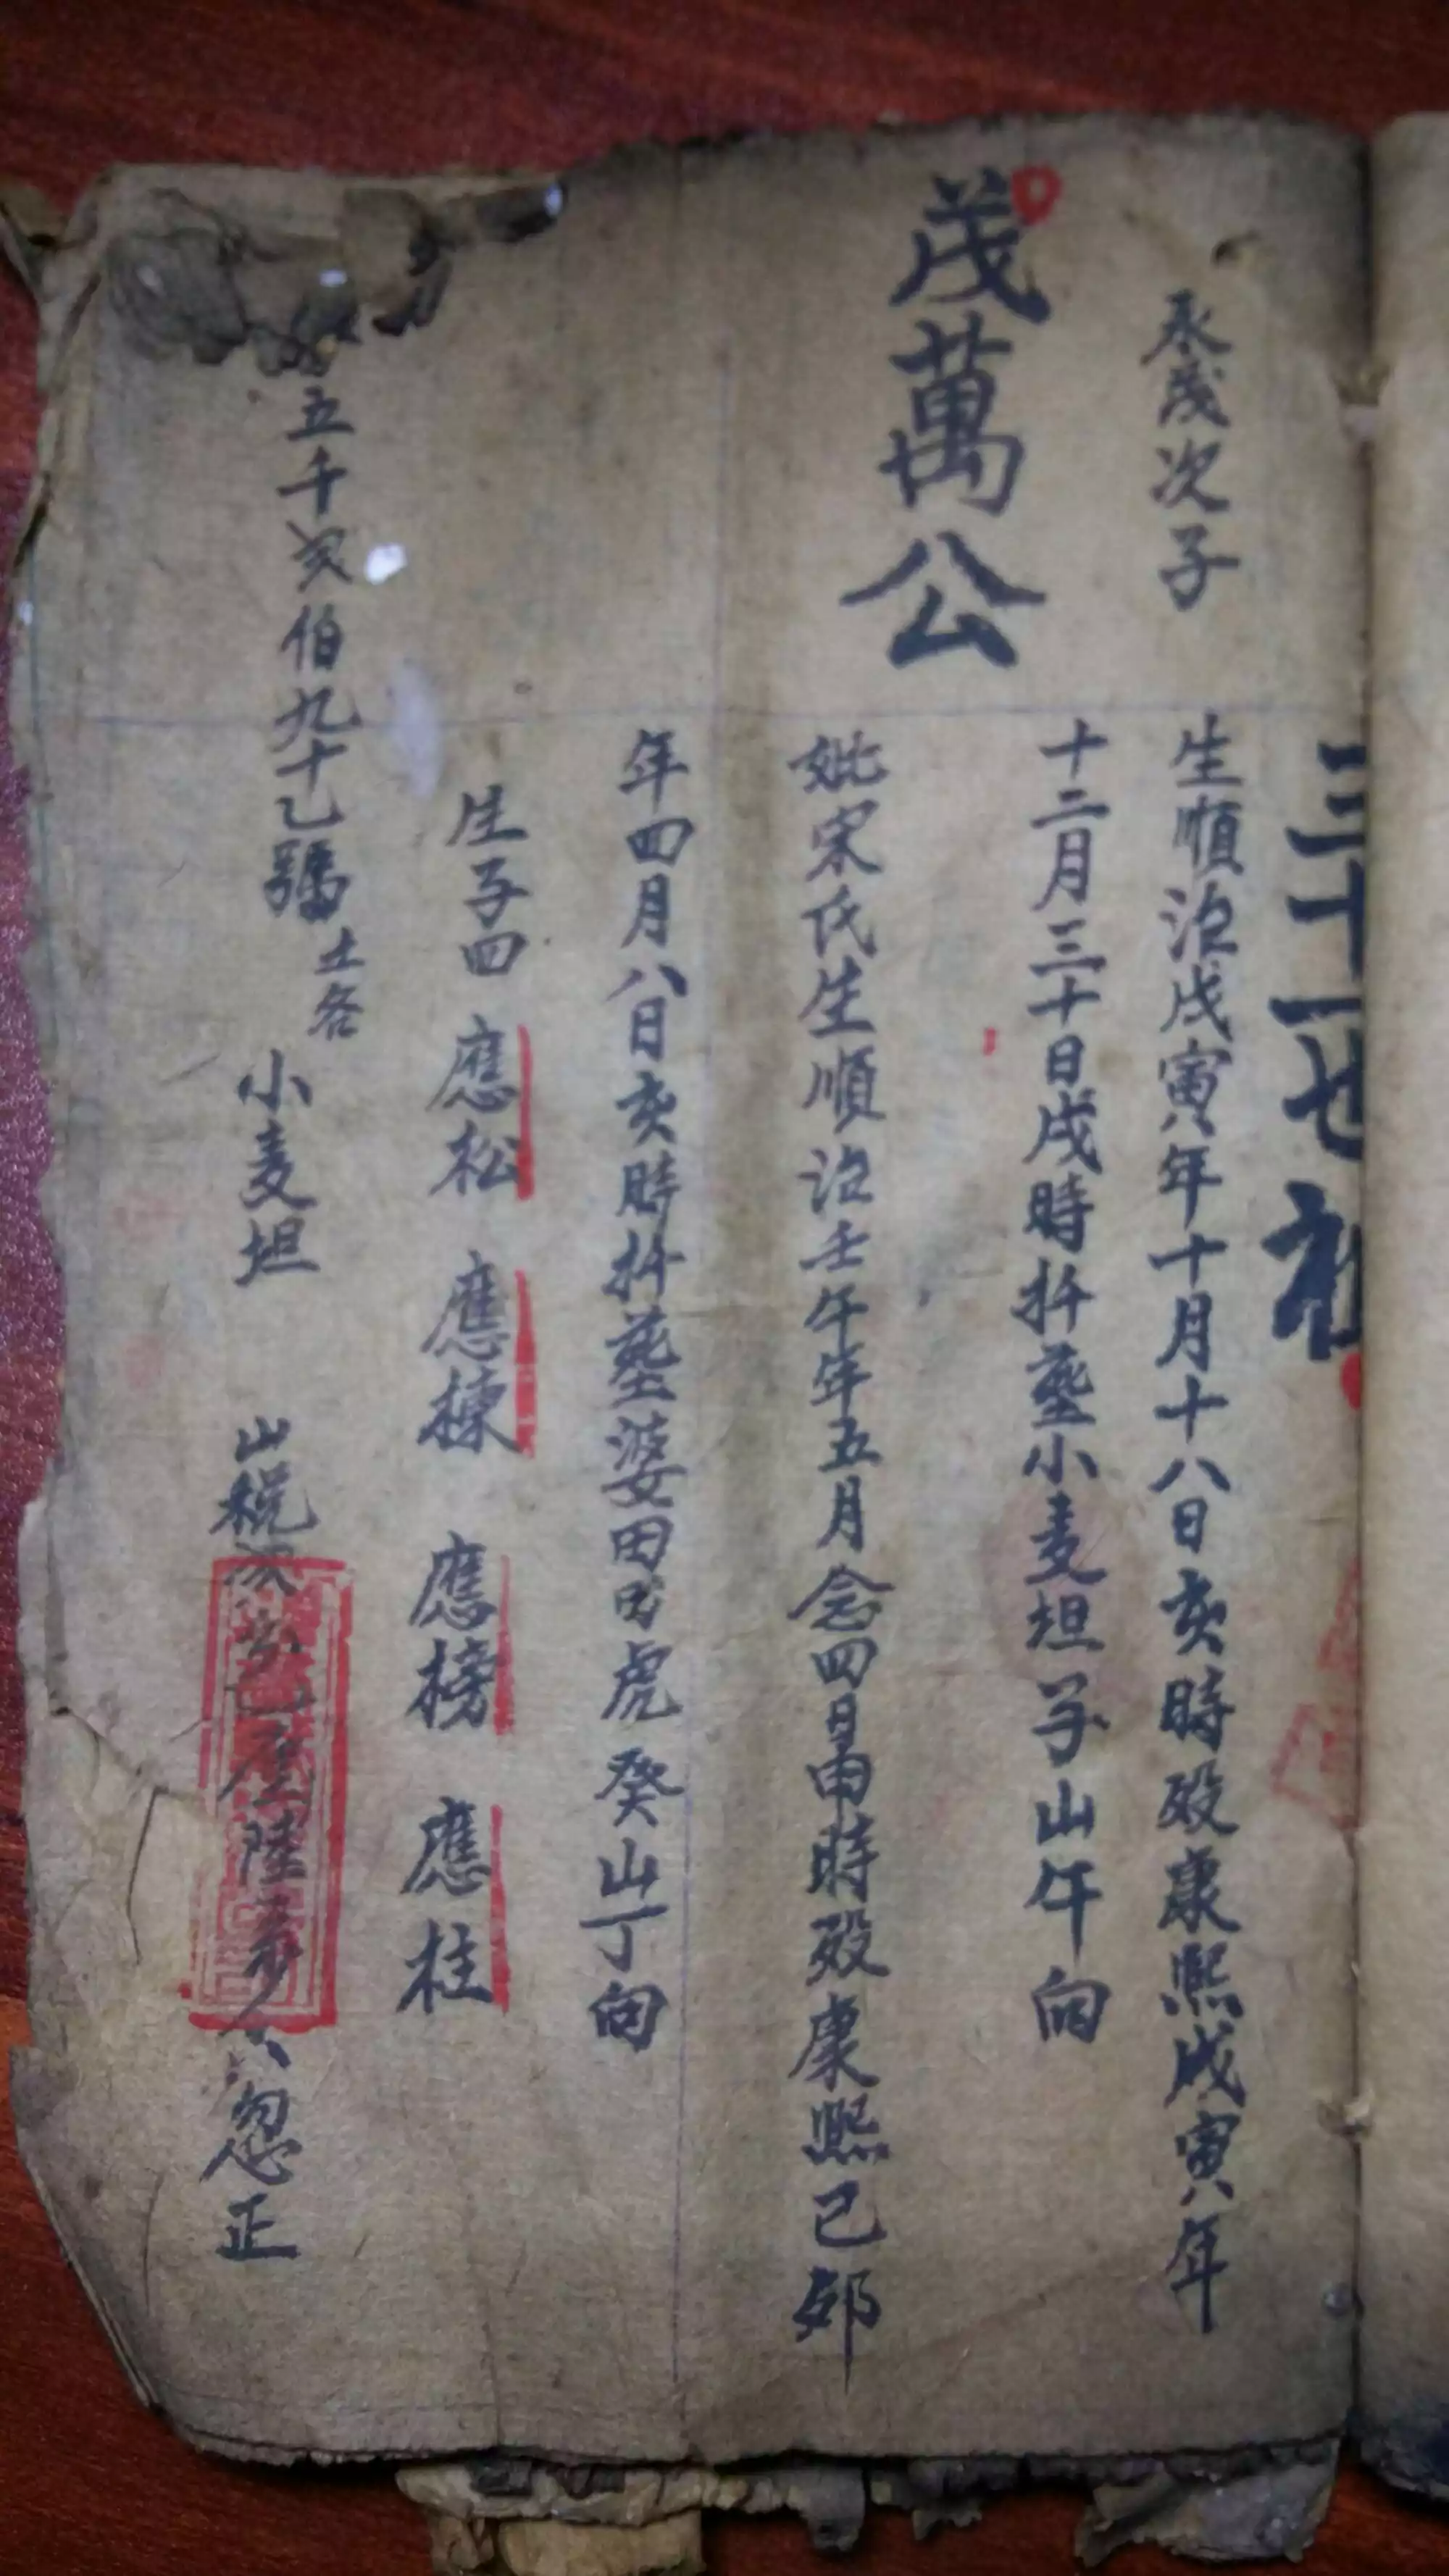 三十一世祖
承茂次子
生順治戊寅年十月十八日亥時歿康熙戊寅年
茂萬公
十二月三十日戌時扦塟小麦坦子山午向
妣宋氏生順治壬午年五月念四日申時歿康熙己卯
年四月八日亥時扦塟婆田虎癸山丁向
生子四 應松 應楝 應榜 應柱
五千 伯九十乙號 土名 小麦坦 山稅 陸 忽正